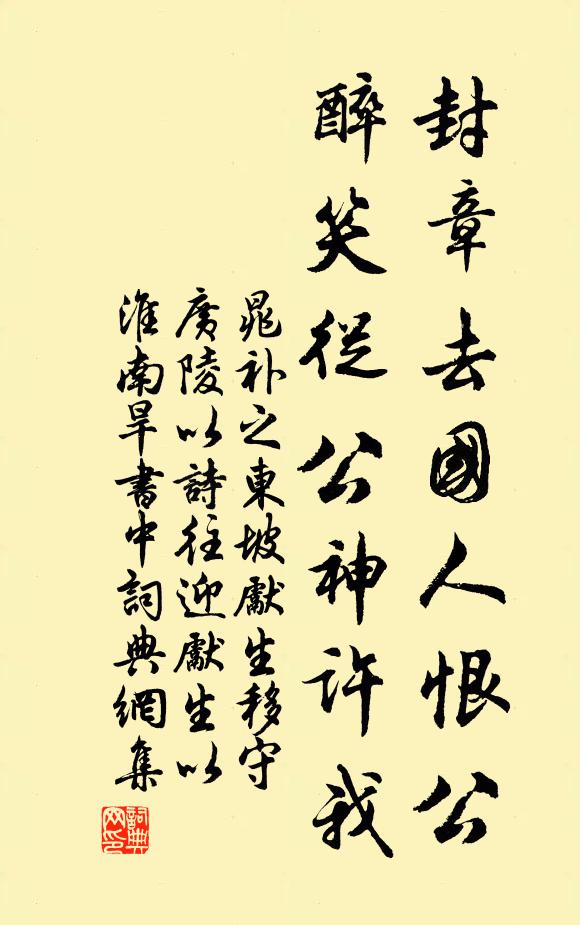 封章去國人恨公
醉笑從公神許我
晁補之東坡獻生移守
廣陵以詩往迎獻生以
淮南旱書中詞典網集
詞典
网印